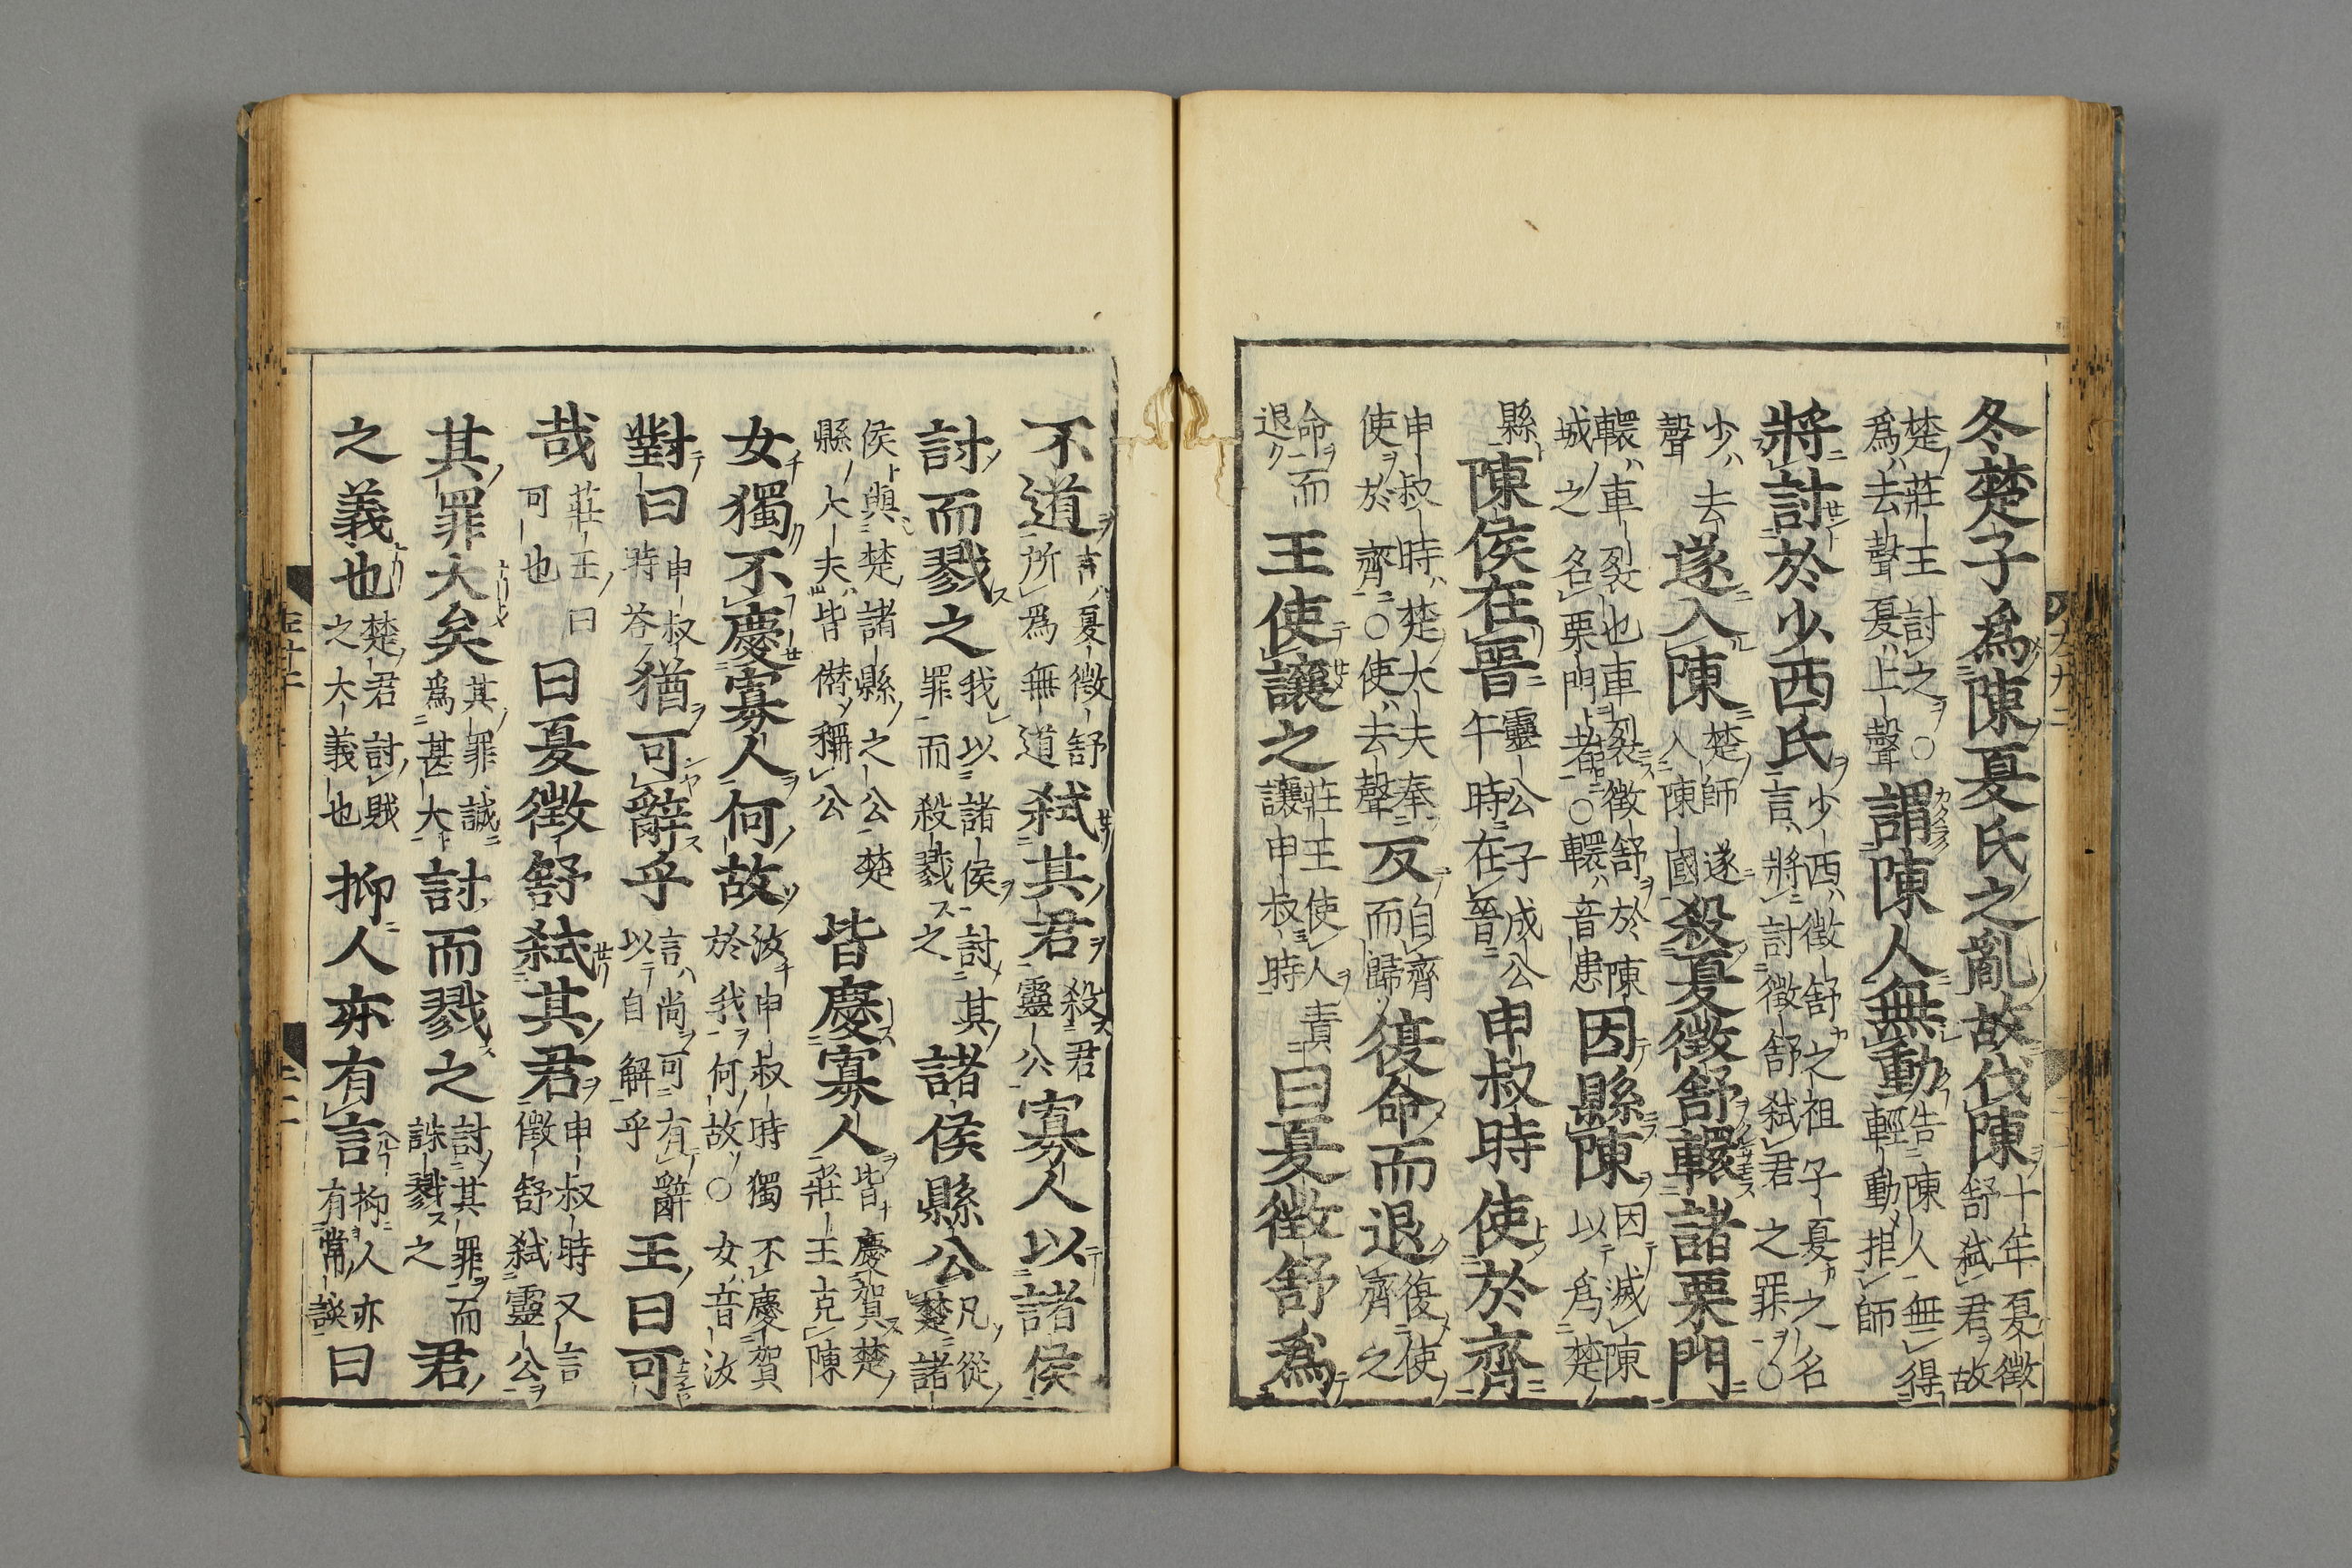 冬楚子爲陳夏氏之亂故伐陳十年夏徵舒弑君故
楚莊王討之○爲去聲夏上聲謂陳人無動告陳人無得輕動拒師
將討於少西氏少西徵舒之祖子夏之名言將討徵舒弑君之罪○
少去聲遂入陳楚師遂入陳國殺夏徵舒轘諸栗門
轘車裂也車裂徵舒於陳城之名栗門者○轘音患因縣陳因滅陳以爲楚
縣陳侯在晉靈公子成公午時在晉申叔時使於齊
申叔時楚大夫奉使於齊○使去聲反自齊而歸復命而退復使齊之
命而退王使讓之莊王使人責讓申叔時曰夏徵舒爲
不道言夏徵舒所爲無道弑其君殺君靈公寡人以諸侯
討而戮之我以諸侯討其罪而殺戮之諸侯縣公凡從楚諸
侯與楚諸縣之公楚縣大夫皆僭稱公皆慶寡人皆慶賀楚莊王克陳
女獨不慶寡人何故汝申叔時獨不慶賀於我何故○女音汝
對曰申叔時荅猶可辭乎言尚可有辭以自解乎王曰可
哉莊王曰可也曰夏徵舒弑其君申叔時又言徵舒弑靈公
其罪大矣其罪誠爲甚大討而戮之討其罪而誅戮之君
之義也楚君討賊之大義也抑人亦有言抑人亦有常談曰